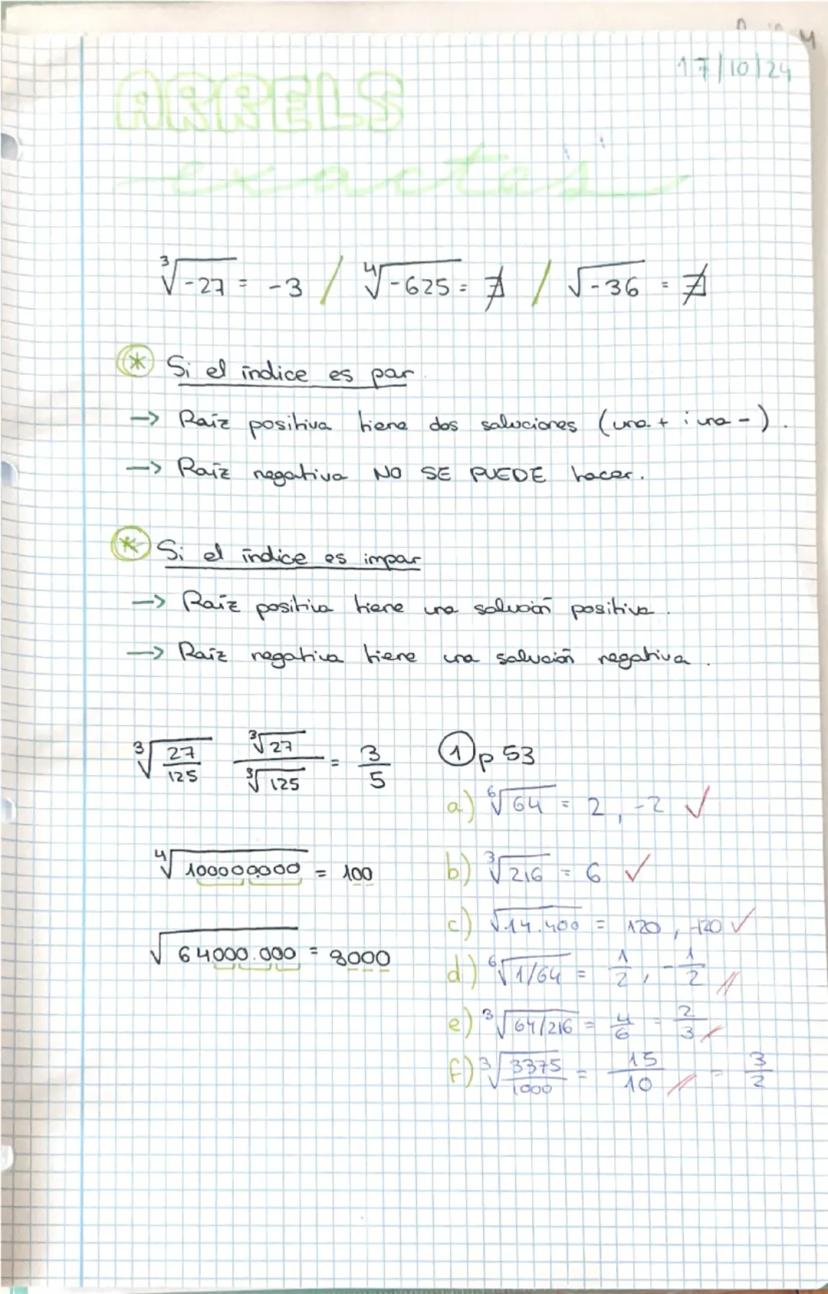 17/10/24
ARRELS
exactes
∛-27 = -3 / ∜-625 = ∄ / √-36 = ∄
* Si el índice es par
→ Raíz positiva tiene dos soluciones (una + i una -).
→ Raíz negativa NO SE PUEDE hacer.
* Si el índice es impar
→ Raíz positiva tiene una solución positiva.
→ Raíz negativa tiene una solución negativa.
∛27/125 ∛27/∛125 = 3/5
∜100000.000 = 100
√64000.000 = 8000
1 p 53
a) ⁶√64 = 2, -2 ✓
b) ∛216 = 6 ✓
c) √14.400 = 120, -120 ✓
d) ⁶√1/64 = 1/2, -1/2
e) ∛64/216 = 4/6 = 2/3
f) ∛3375/1000 = 15/10 = 3/2